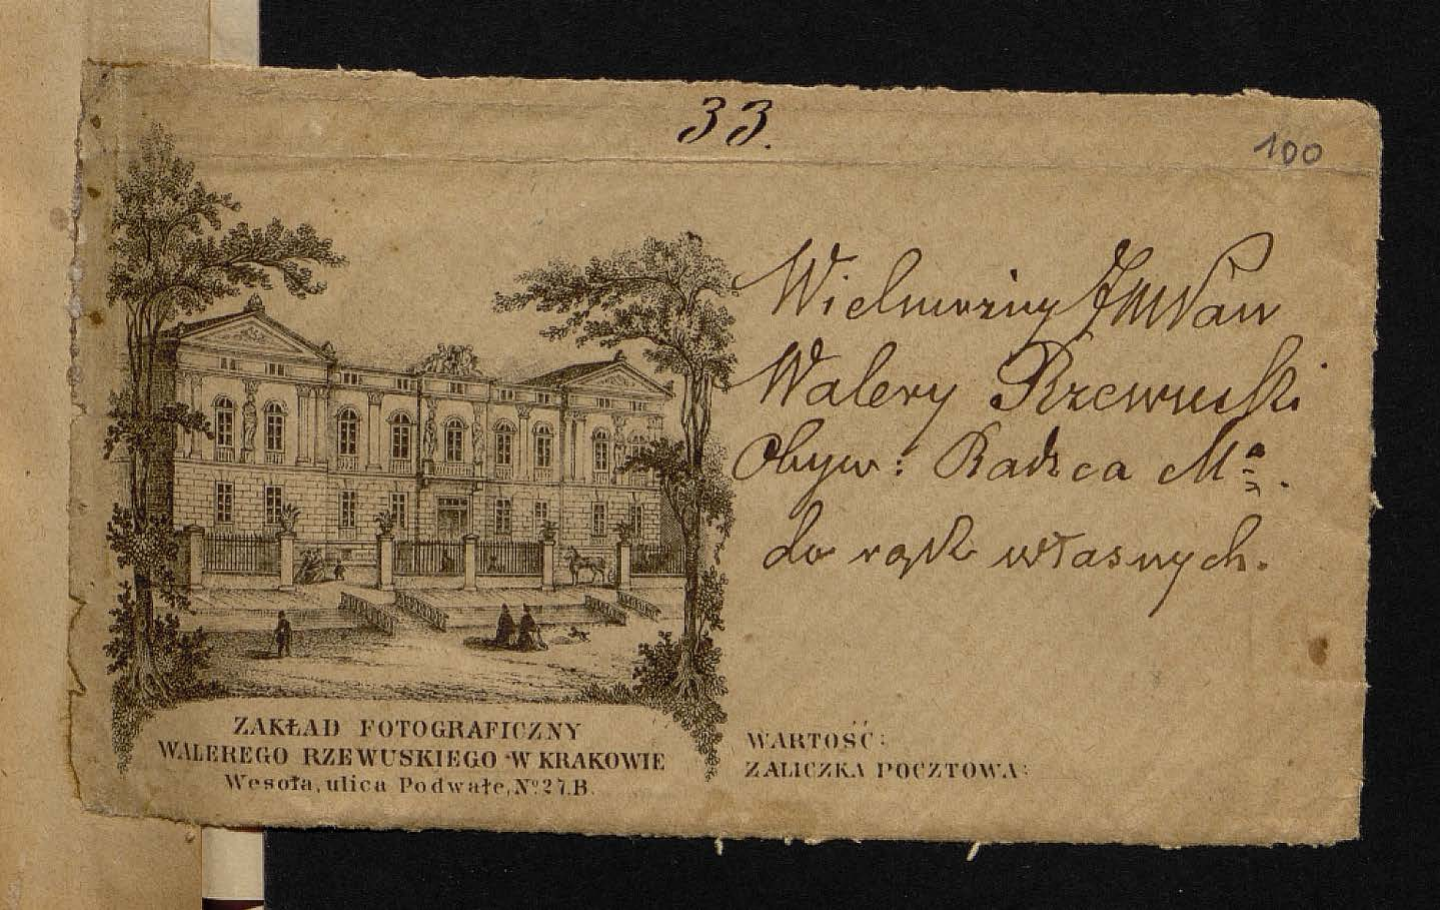 33.
100
Wielmożny JMPan
Walery Rzewuski
Obyw: Radzca Ma.
do rąk własnych.
ZAKŁAD FOTOGRAFICZNY
WALEREGO RZEWUSKIEGO W KRAKOWIE
Wesoła, ulica Podwale, No. 27.B.
WARTOŚĆ:
ZALICZKA POCZTOWA: